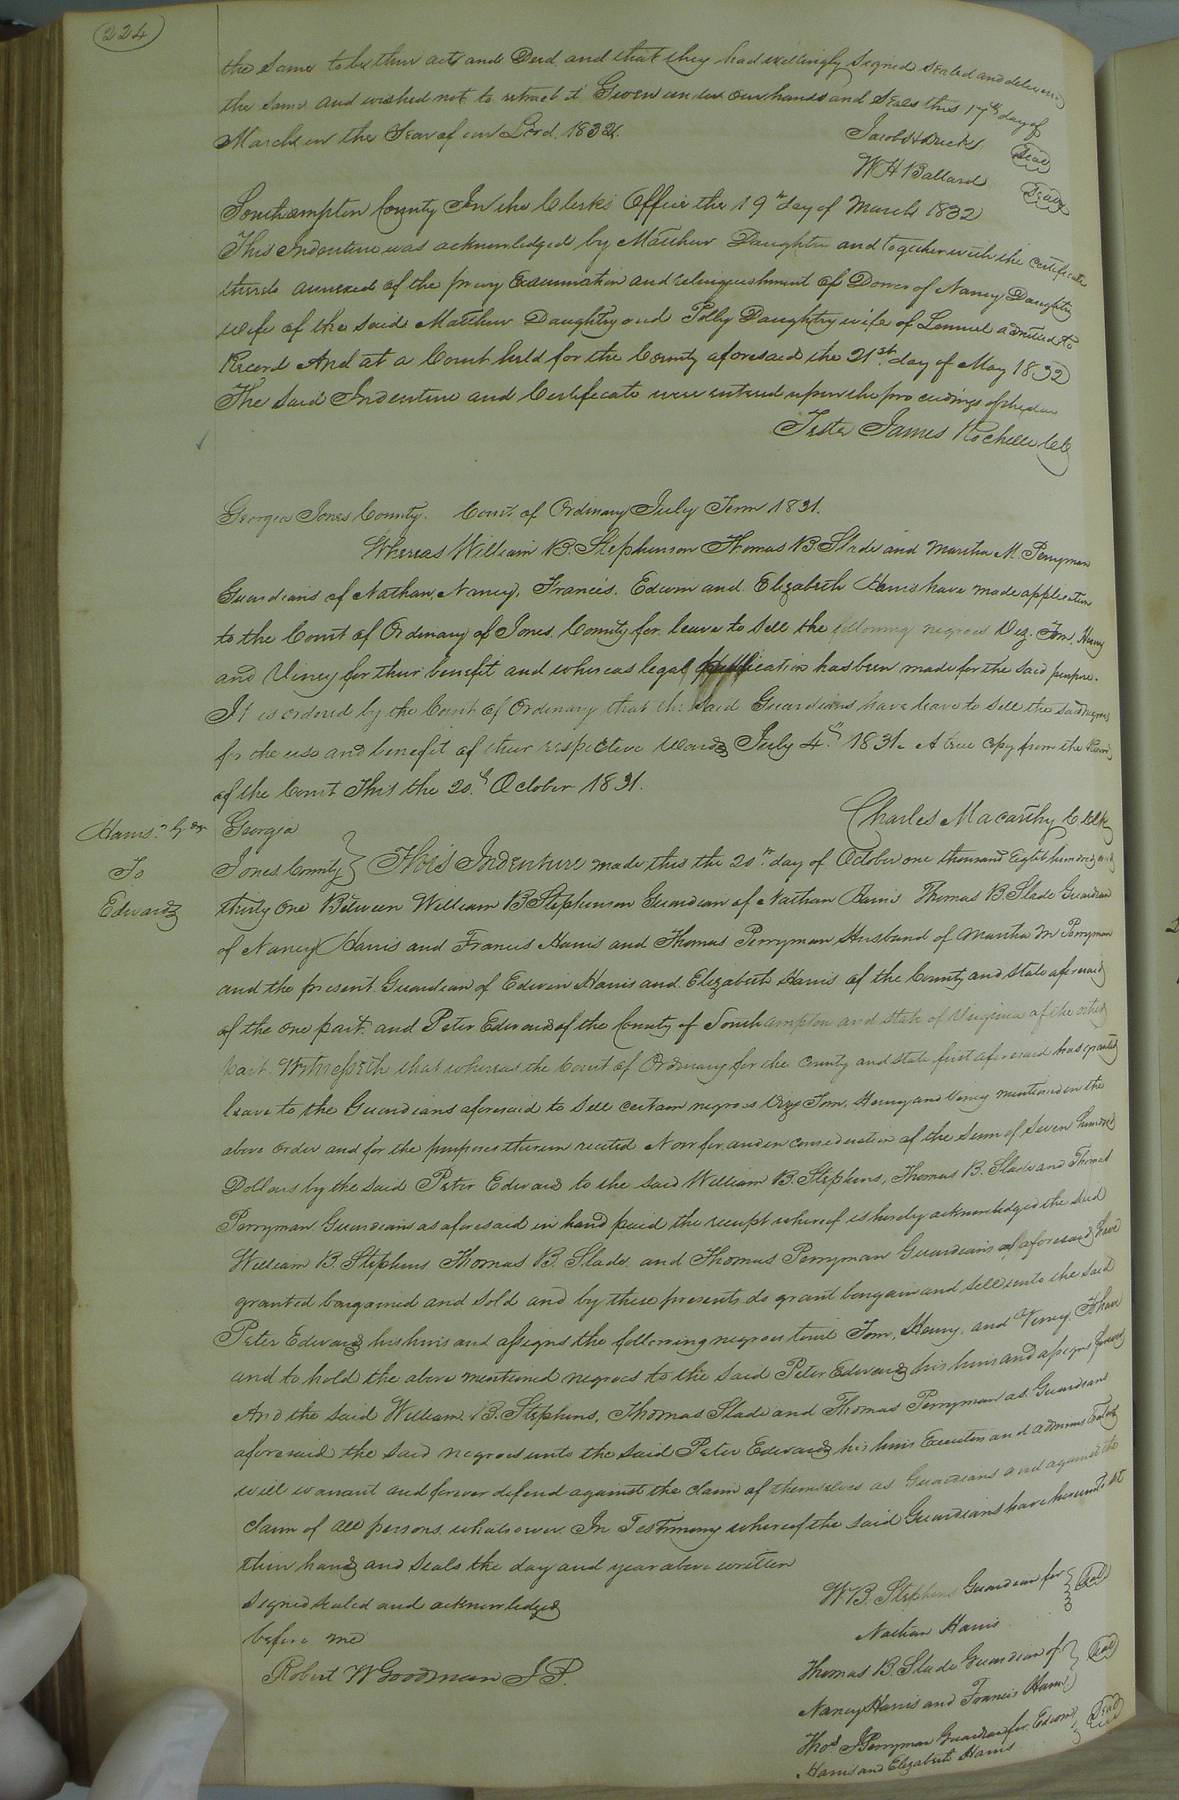 224
the same to be their acts and Deed and that they had willingly signed sealed and delivered
the same and wished not to retract it Given under our hands and Seals this 17th day of
March in the Year of our Lord 1832.
Jacob H Seal
W H Ballard Seal
Southampton County In the Clerk's Office the 19th day of March 1832
This Indenture was acknowledged by Matthew Daughtry and together with the certificate
thereto annexed of the privy Examination and relinquishment of Dower of Nancy Daughtry
wife of the said Matthew Daughtry and Polly Daughtry wife of Lemuel admitted to
Record And at a Court held for the County aforesaid the 21st day of May 1832
The said Indenture and Certificate were entered upon the proceedings of the day
Teste James Rochelle Clk
Georgia Jones County. Court of Ordinary July Term 1831.
Whereas William B. Stephenson Thomas B. Slade and Martha M. Perryman
Guardians of Nathan, Nancy, Francis, Edwin and Elizabeth Harris have made application
to the Court of Ordinary of Jones County for leave to sell the following negroes Viz. Tom, Henry
and Viney for their benefit and whereas legal publication has been made for the said purpose.
It is ordered by the Court of Ordinary that the said Guardians have leave to sell the said negroes
for the use and benefit of their respective Wards July 4th 1831. A true copy from the Records
of the Court This the 20th October 1831.
Charles Macarthy C Clk
Harris Gdn
To
Edwards
Georgia
Jones County } This Indenture made this the 20th day of October one thousand Eight hundred and
thirty one Between William B Stephenson Guardian of Nathan Harris Thomas B. Slade Guardian
of Nancy Harris and Francis Harris and Thomas Perryman Husband of Martha M Perryman
and the present Guardian of Edwin Harris and Elizabeth Harris of the County and State aforesaid
of the one part and Peter Edwards of the County of Southampton and State of Virginia of the other
part. Witnesseth that whereas the Court of Ordinary for the County and State first aforesaid has granted
leave to the Guardians aforesaid to sell certain negroes Viz Tom, Henry and Viney mentioned in the
above order and for the purposes therein recited Now for and in consideration of the sum of Seven hundred
Dollars by the said Peter Edwards to the said William B. Stephens, Thomas B. Slade and Thomas
Perryman Guardians as aforesaid in hand paid the receipt whereof is hereby acknowledged the said
William B. Stephens Thomas B. Slade and Thomas Perryman Guardians as aforesaid have
granted bargained and sold and by these presents do grant bargain and sell unto the said
Peter Edwards his heirs and assigns the following negroes towit Tom, Henry, and Viney To have
and to hold the above mentioned negroes to the said Peter Edwards his heirs and assigns forever
And the said William B. Stephens, Thomas Slade and Thomas Perryman as Guardians
aforesaid the said negroes unto the said Peter Edwards his heirs Executors and administrators
will warrant and forever defend against the claim of themselves as Guardians and against the
claim of all persons whatsoever In Testimony whereof the said Guardians have hereunto set
their hands and seals the day and year above written
Signed sealed and acknowledged
before me
Robert W Goodman J P.
W. B. Stephens Guardian for
Nathan Harris Seal
Thomas B. Slade Guardian of
Nancy Harris and Francis Harris Seal
Thos J Perryman Guardian for Edwin
Harris and Elizabeth Harris Seal